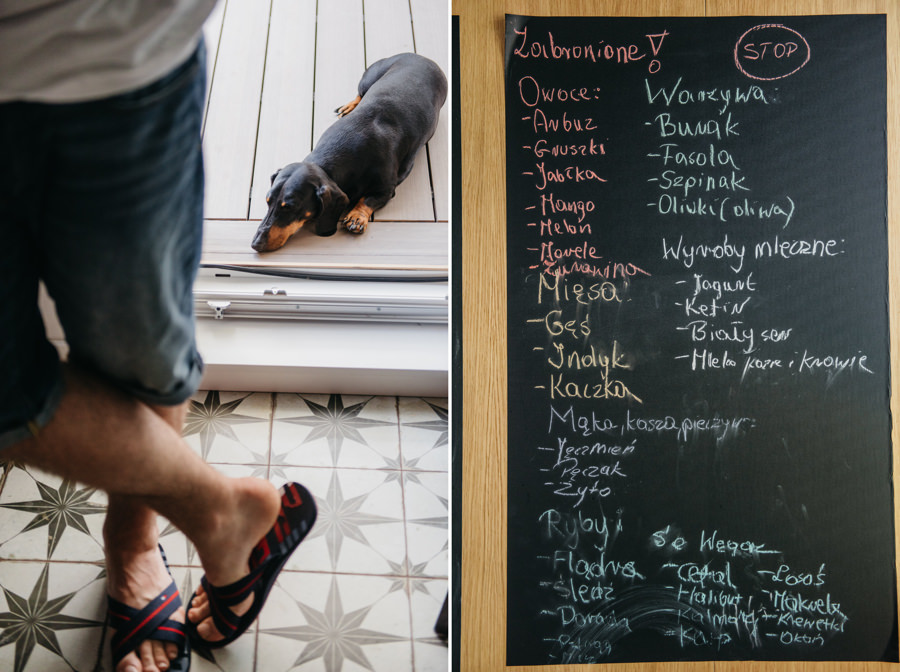 Zabronione!
STOP
Owoce:
- Arbuz
- Gruszki
- Jabłka
- Mango
- Melon
- Morele
- Żurawina
Warzywa:
- Burak
- Fasola
- Szpinak
- Oliwki (oliwa)
Wyroby mleczne:
- Jogurt
- Kefir
- Biały ser
- Mleko kozie i krowie
Mięsa:
- Gęś
- Indyk
- Kaczka
Mąka, kasza, pieczyw:
- Jęczmień
- Pęczak
- Żyto
Ryby i
- Flądra
- Śledź
- Dorsz
- Halibut
- Łosoś
- Makrela
- Krewetki
- Okoń